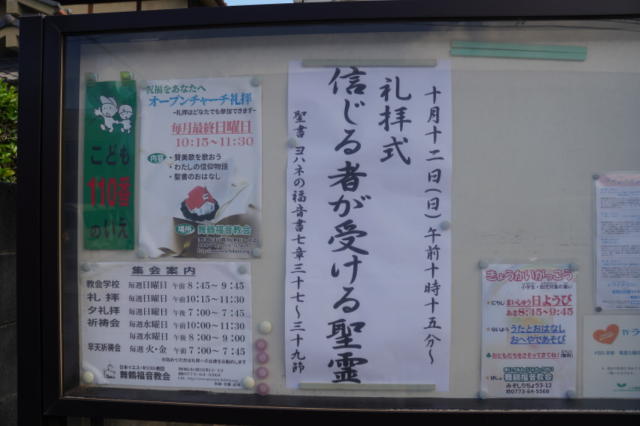 こども
110番
のいえ
祝福をあなたへ
オープンチャーチ礼拝
~礼拝はどなたでも参加できます~
毎月最終日曜日
10:15~11:30
内容
・賛美歌を歌おう
・わたしの信仰物語
・聖書のおはなし
場所
舞鶴福音教会
集会案内
教会学校 毎週日曜日 午前 8:45~9:45
礼拝 毎週日曜日 午前10:15~11:30
夕礼拝 毎週日曜日 午後 7:00~7:45
祈祷会 毎週水曜日 午前10:00~11:30
毎週水曜日 午後 8:00~9:00
早天祈祷会 毎週火・金 午前 7:00~7:45
舞鶴福音教会
十月十二日(日)午前十時十五分~
礼拝式
信じる者が受ける聖霊
聖書 ヨハネの福音書七章三十七~三十九節
きょうかいがっこう
まいしゅう日ようび
あさ8:45~9:45
うたとおはなし
おへやであそび
おともだちをさそってきてね!
舞鶴福音教会
みそしりちょう3-12
☎0773-64-5568